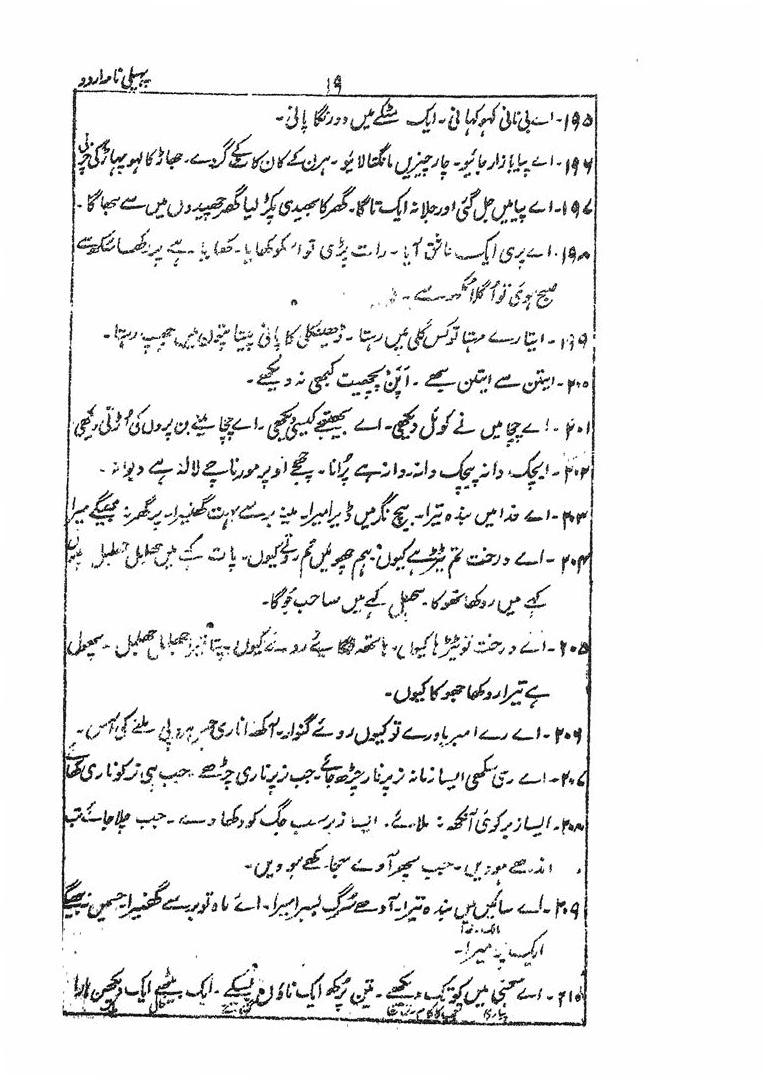 پہیلی نامہ اردو
۱۹
۱۹۵- اے بی نانی کہو کہانی- ایک مٹکے میں دو رنگا پانی-
۱۹۶- اے پیا بازار جائیو- چار چیزیں مانگتا لائیو- ہرن کے کان کا سکے گردے- جھاڑ کا لہو پہاڑ کی چربی
۱۹۷- اے پیا میں جل گئی اور جلا نہ ایک تاگا- گھر کا بھیدی پکڑ لیا گھر چھیدوں میں سے بھاگا-
۱۹۸- اے پری ایک عاشق آیا- رات پڑی تو اسکو کھایا- کھایا ہے پر رکھا سکھ سے
صبح ہوئی تو اُگلا مکھ سے-
۱۹۹- ایتا رے مہتا تو کس گلی میں رہتا- ڈھینکلی کا پانی پیتا پتوں میں چھپ رہتا-
۲۰۰- ایتن سے ایتن سبھے- اپن پچھیت کبھی نہ دیکھے-
۲۰۱- اے چچا میں نے کوئل دیکھی- اے بھتیجے کیسی دیکھی- اے چچا میں بن پروں کی اُڑتی دیکھی
۲۰۲- ایچک دانہ پیچک دانہ- دانہ ہے پُرانا- چھجے اوپر مور ناچے لالہ ہے دیوانہ-
۲۰۳- اے خدا میں بندہ تیرا- بیچ نگر میں ڈیرا میرا- مینہ برسے بہت گھنیرا- پر گھر نہ بھیگے میرا
۲۰۴- اے درخت تم ٹیڑھے کیوں- ہم چھوئیں تم روتے کیوں- پات کے میں جھلیل جھلیل
کہے میں روکھا تھوکا- پھل کہے میں صاحب جوگا-
۲۰۵- اے درخت تو ٹیڑھا کیوں- ہاتھ لگا سے رونے کیوں- پتا تیرا جھلیل جھلیل- پھول
ہے تیرا روکھا بھوکا کیوں-
۲۰۶- اے رے امبر باورے تو کیوں روئے گنوار- پی ملنے کی آس-
۲۰۷- اے ری سکھی ایسا زمانہ نر پر نار چڑھ جائے- جب نر پر ناری چڑھے- جب ہی نر کو ناری کھا
۲۰۸- ایسا نر کوئی آنکھ نہ ملائے- ایسا نر سب جگ کو دکھا دے- جب چلا جائے تب
اندھے ہوویں- جب پھر آوے سجاکھے ہوویں-
۲۰۹- اے سائیں میں بندہ تیرا- آدھے سُرگ بسیرا میرا- اے ماہ تو برسے گھنیرا- جسمیں نہ بھیگے
ایک پر میرا-
۲۱۰- اے سکھی میں کوتک دیکھے- تین پُرکھ ایک ناؤں- ایک بیٹھے ایک دیکھن ہارا